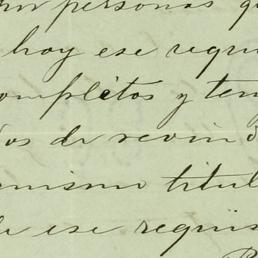 personas q
hoy ese requi
ompletos y ten
os de
mismo titul
ese requis